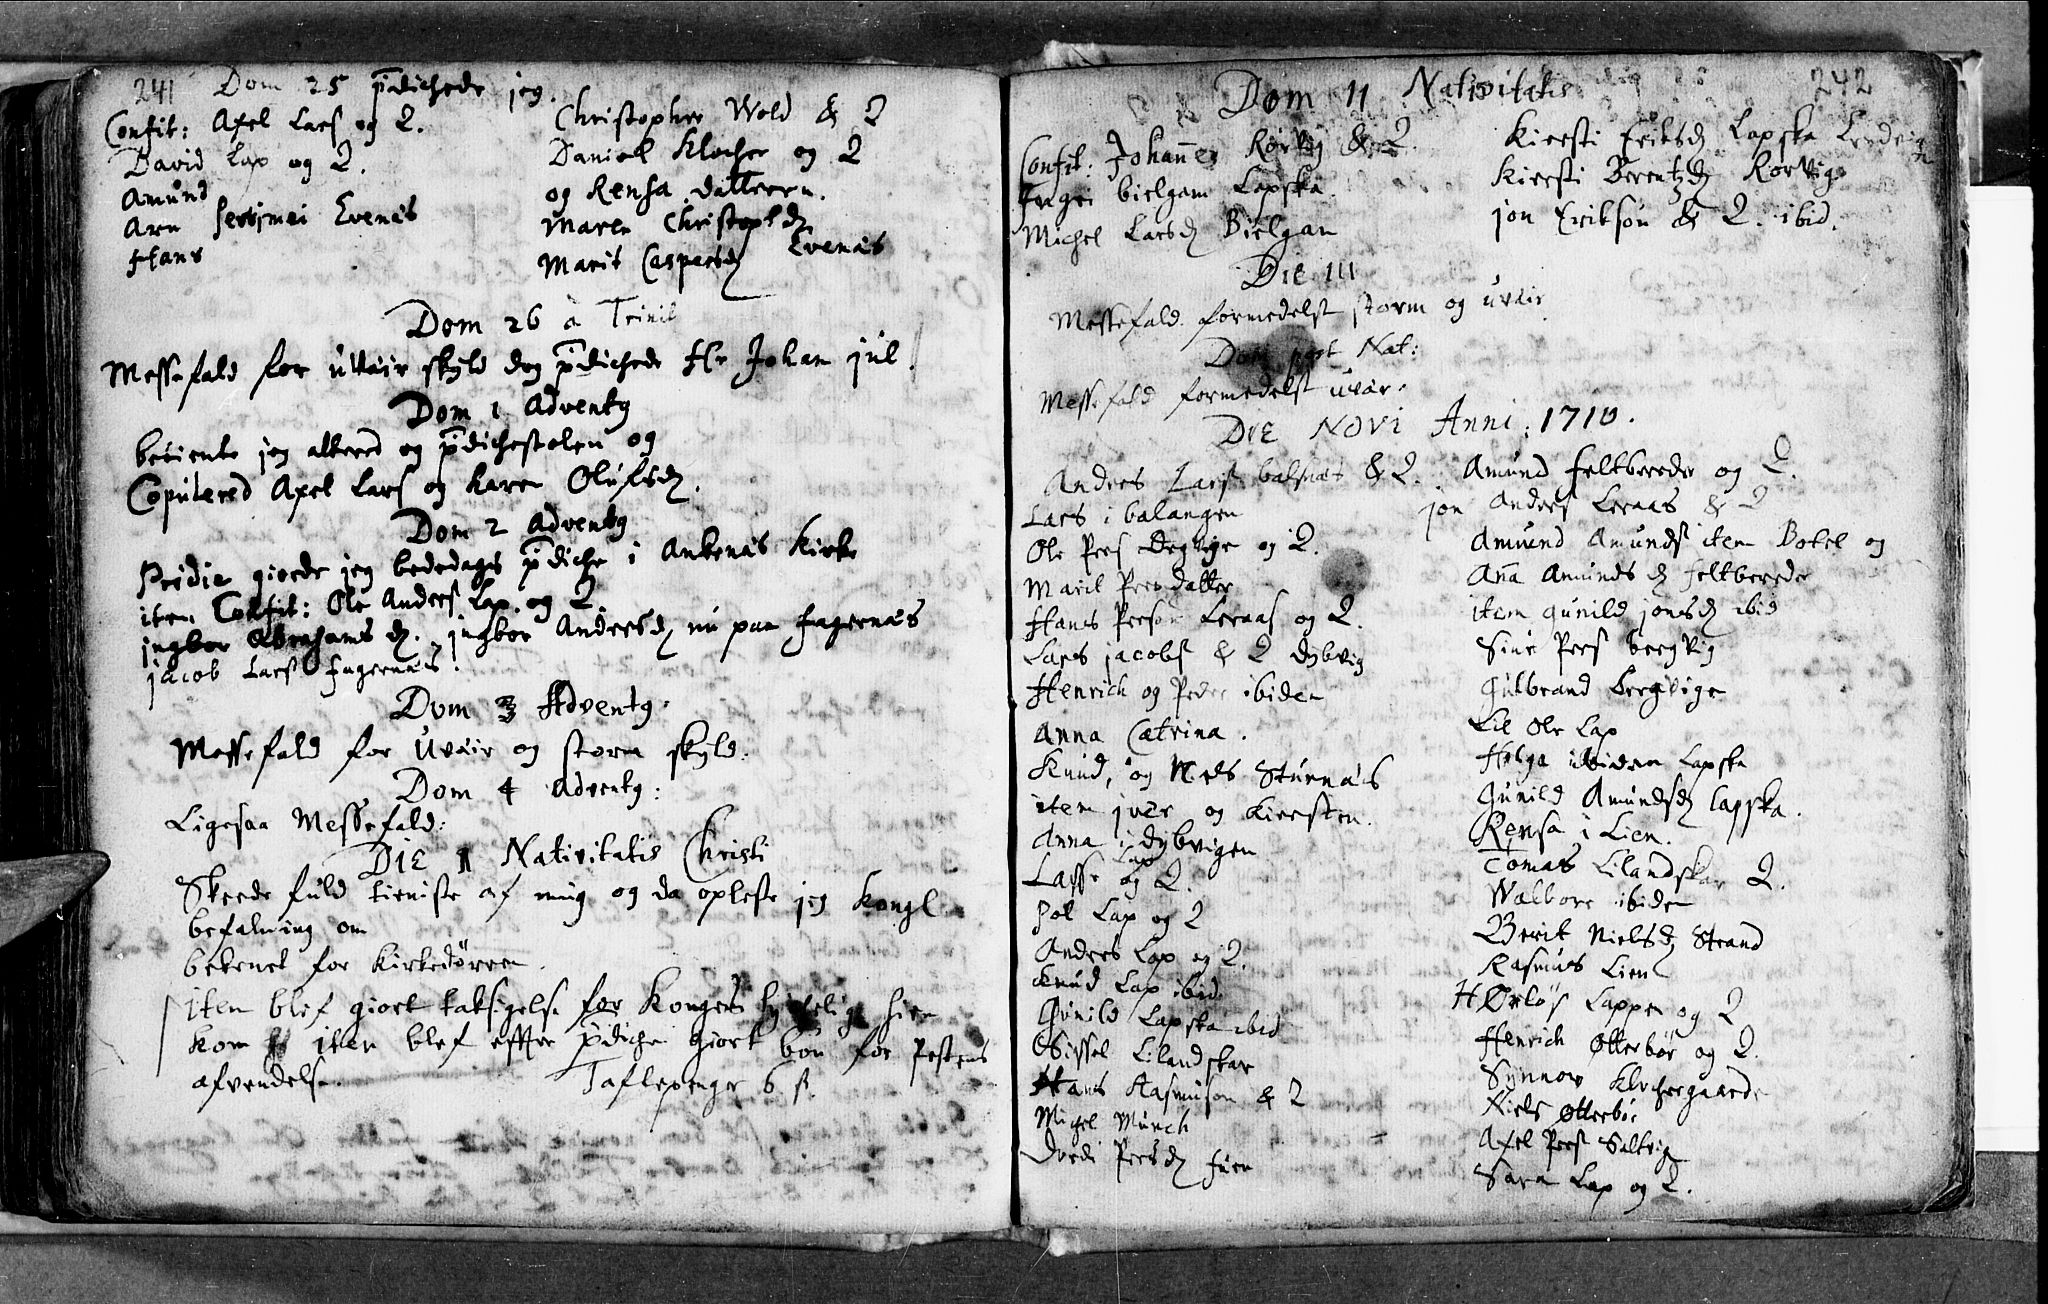 241 Dom 25 p̄dichede jeg.
Confit: Axel Lars og Q.
David Lap og Q.
Amund
Arn Evenæs
Hans
Christopher Wold & Q
Daniel Klocher og Q
og Rensa datteren.
Maren Christophdʒ
Marit Caspersdʒ Evenæs
Dom 26 a Trinit
Messefald for uvæir skyld dog p̄dichede Hr Johan jul.
Dom 1 Adventʒ
beiente jeg alteret og p̄dichestolen og
Copulered Axel Lars og Karen Olufsdʒ.
Dom 2 Adventʒ
Pridie giorde jeg bededags p̄diche i Ankenæs Kirke
iten Confit: Ole Anders Lap. og Q
jngbor Abrahamsdʒ. jngbor Andersdʒ nu paa Fagernæs
jacob Lars Fagernæs.
Dom 3 Adventʒ.
Messefald for Uvæir og storm skyld.
Dom 4 Adventʒ:
Ligesaa Messefald:
DIE 1 Nativitatis Christi
Skeede fuld tieniste af mig og da opleste jeg Kongl
befalning om
betenet for Kirkedørren.
iten blef giort taksigelse for Kongens hiem
kom iten blef effter p̄dichen giort bøn for Pestens
afvendelse. Taflepenge 6 s.
Dom 11 Nativitatis 242
Confit: Johannes Rørvig & Q.
Bielgam Lapska
Michel Larsdʒ Bielgam
Kiersti Eriksdʒ Lapska
Kiersti Berentzdʒ Rørvig
jon Erikson & Q. ibid.
Die 111
Messefald formedelst storm og uvæir
Dom post Nat:
Messefald formedelst uvær.
DIE NOVI Anni: 1710.
Anders Lars balsnæs & Q.
Lars i balangen
Ole Pers Degvige og Q.
Marit Persdatter
Hans Person Leraas og Q.
Lars jacobs & Q dybvig
Henrich og Peder ibiden
Anna Catrina.
Knud, og Niels Sturnæs
iten jver og Kiersten.
Anna i dybvigen
Lasse Lap og Q.
Pol Lap og Q
Anders Lap og Q.
Knud Lap ibid
Gunild Lapska ibid
Sissel Lilandskar
Hans Rasmuson & Q
Migel Munch
Dordi Persdʒ
Amund Feltberede og Q.
jon Anders Leraas & Q
Amund Amunds iten Botel og
Aña Amundsdʒ Feltberede
iten gunild jonsdʒ ibid
Siur Pers bergvig
Gulbrand bergvige
Lil Ole Lap
Helga ibiden Lapska
Gunild Amundsdʒ Lapska.
Rensa i Lien.
Tomas Lilandskar Q.
Walbore ibiden
Berit Nielsdʒ Strand
Rasmus Lien
Lappen og Q
Henrich Otterbør og Q.
Synnov Klochergaarde
Niels Otterbør
Axel Pers Saltvig
Sara Lap og Q.